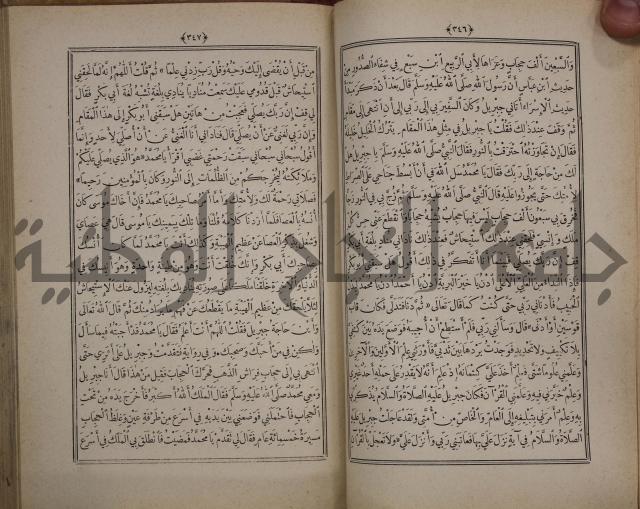 ﴿٣٤٦﴾
والسبعين ألف حجاب وعزاها لأبي الربيع ابن سبع في شفاء الصدور من
حديث ابن عباس أن رسول الله صلى الله عليه وسلم قال بعد أن ذكر مبدأ
حديث الإسراء أتاني جبريل وكان السفير بي إلى ربي إلى أن انتهى إلى مقام
ثم وقف عند ذلك فقلت يا جبريل في مثل هذا المقام يترك الخليل خليله
فقال إن تجاوزته احترقت بالنور فقال النبي صلى الله عليه وسلم يا جبريل هل
لك من حاجة إلى ربك فقال يا محمد سل الله في أن أبسط جناحي على الصراط
لأمتك حتى يجوزوا عليه قال النبي صلى الله عليه وسلم ثم زج بي في النور زجا
فخرق بي سبعون ألف حجاب ليس فيها حجاب يشبه حجابا وانقطع عني حس كل
ملك وإنسي فلحقني عند ذلك استيحاش فعند ذلك نادى مناد بلغة أبي بكر
قف إن ربك يصلي فبينا أنا أتفكر في ذلك
فإذا النداء من العلي الأعلى أدن يا خير البرية أدن يا أحمد أدن يا محمد
الحبيب فأدناني ربي حتى كنت كما قال تعالى ثم دنا فتدلى فكان قاب
قوسين أو أدنى قال وسألني ربي فلم أستطع أن أجيبه فوضع يده بين كتفي
بلا تكييف ولا تحديد فوجدت بردها بين ثديي فأورثني علم الأولين والآخرين
وعلمني علوما شتى فعلم أخذ علي كتمانه إذ علم أنه لا يقدر على حمله أحد غيري
وعلم خيرني فيه وعلمني القرآن فكان جبريل عليه الصلاة والسلام يذكرني
به وعلم أمرني بتبليغه إلى العام والخاص من أمتي ولقد عاجلت جبريل عليه
الصلاة والسلام في آية نزل علي بها فعاتبني ربي وأنزل علي ولا تعجل بالقرآن
﴿٣٤٧﴾
من قبل أن يقضى إليك وحيه وقل رب زدني علما ثم قلت اللهم إنه لما لحقني
استيحاش قبل قدومي عليك سمعت مناديا ينادي بلغة تشبه لغة أبي بكر فقال
لي قف إن ربك يصلي فعجبت من هاتين هل سبقني أبو بكر إلى هذا المقام
وإن ربي لغني عن أن يصلي قال فناداني أنا الغني عن أن أصلي لأحد وإنما
أقول سبحاني سبحاني سبقت رحمتي غضبي اقرأ يا محمد هو الذي يصلي عليكم
وملائكته ليخرجكم من الظلمات إلى النور وكان بالمؤمنين رحيما
فصلاتي رحمة لك ولأمتك وأما أمر صاحبك يا محمد فإن أخاك موسى كان
أنسه بالعصا فلما أردنا كلامه قلنا وما تلك بيمينك يا موسى قال هي عصاي
وشغل بذكر العصا عن عظيم الهيبة وكذلك أنت يا محمد لما كان أنسك
بصاحبك أبي بكر وإنك خلقت أنت وهو من طينة واحدة وهو أنيسك في
الدنيا والآخرة خلقنا ملكا على صورته يناديك بلغته ليزول عنك الاستيحاش
لئلا يلحقك من عظيم الهيبة ما يقطعك عن فهم ما يراد منك ثم قال الله تعالى
وأين حاجة جبريل فقلت اللهم أنت أعلم فقال يا محمد قد أجبته فيما سأل
ولكن في من أحبك وصحبك وفي رواية فتقدمت وجبريل على أثري حتى
انتهى بي إلى حجاب فراش الذهب فحرك الحجاب فقيل من هذا قال أنا جبريل
ومعي محمد صلى الله عليه وسلم فقال الملك الله أكبر فأخرج يده من تحت
الحجاب فاحتملني فوضعني بين يديه في أسرع من طرفة عين وغلظ الحجاب
مسيرة خمسمائة عام فقال لي تقدم يا محمد فمضيت فانطلق بي الملك في أسرع
جامعة النجاح الوطنية